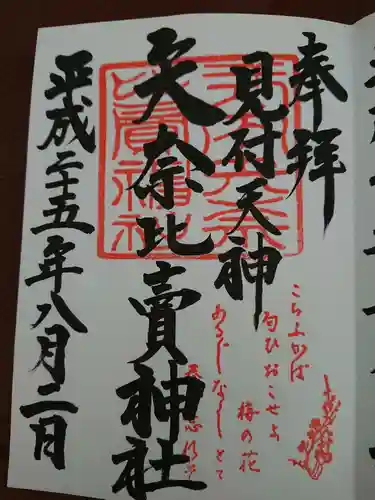 奉拝
見付天神
矢奈比賣神社
平成二十五年八月二日
こちふかば
匂ひおこせよ
梅の花
あるじなしとて